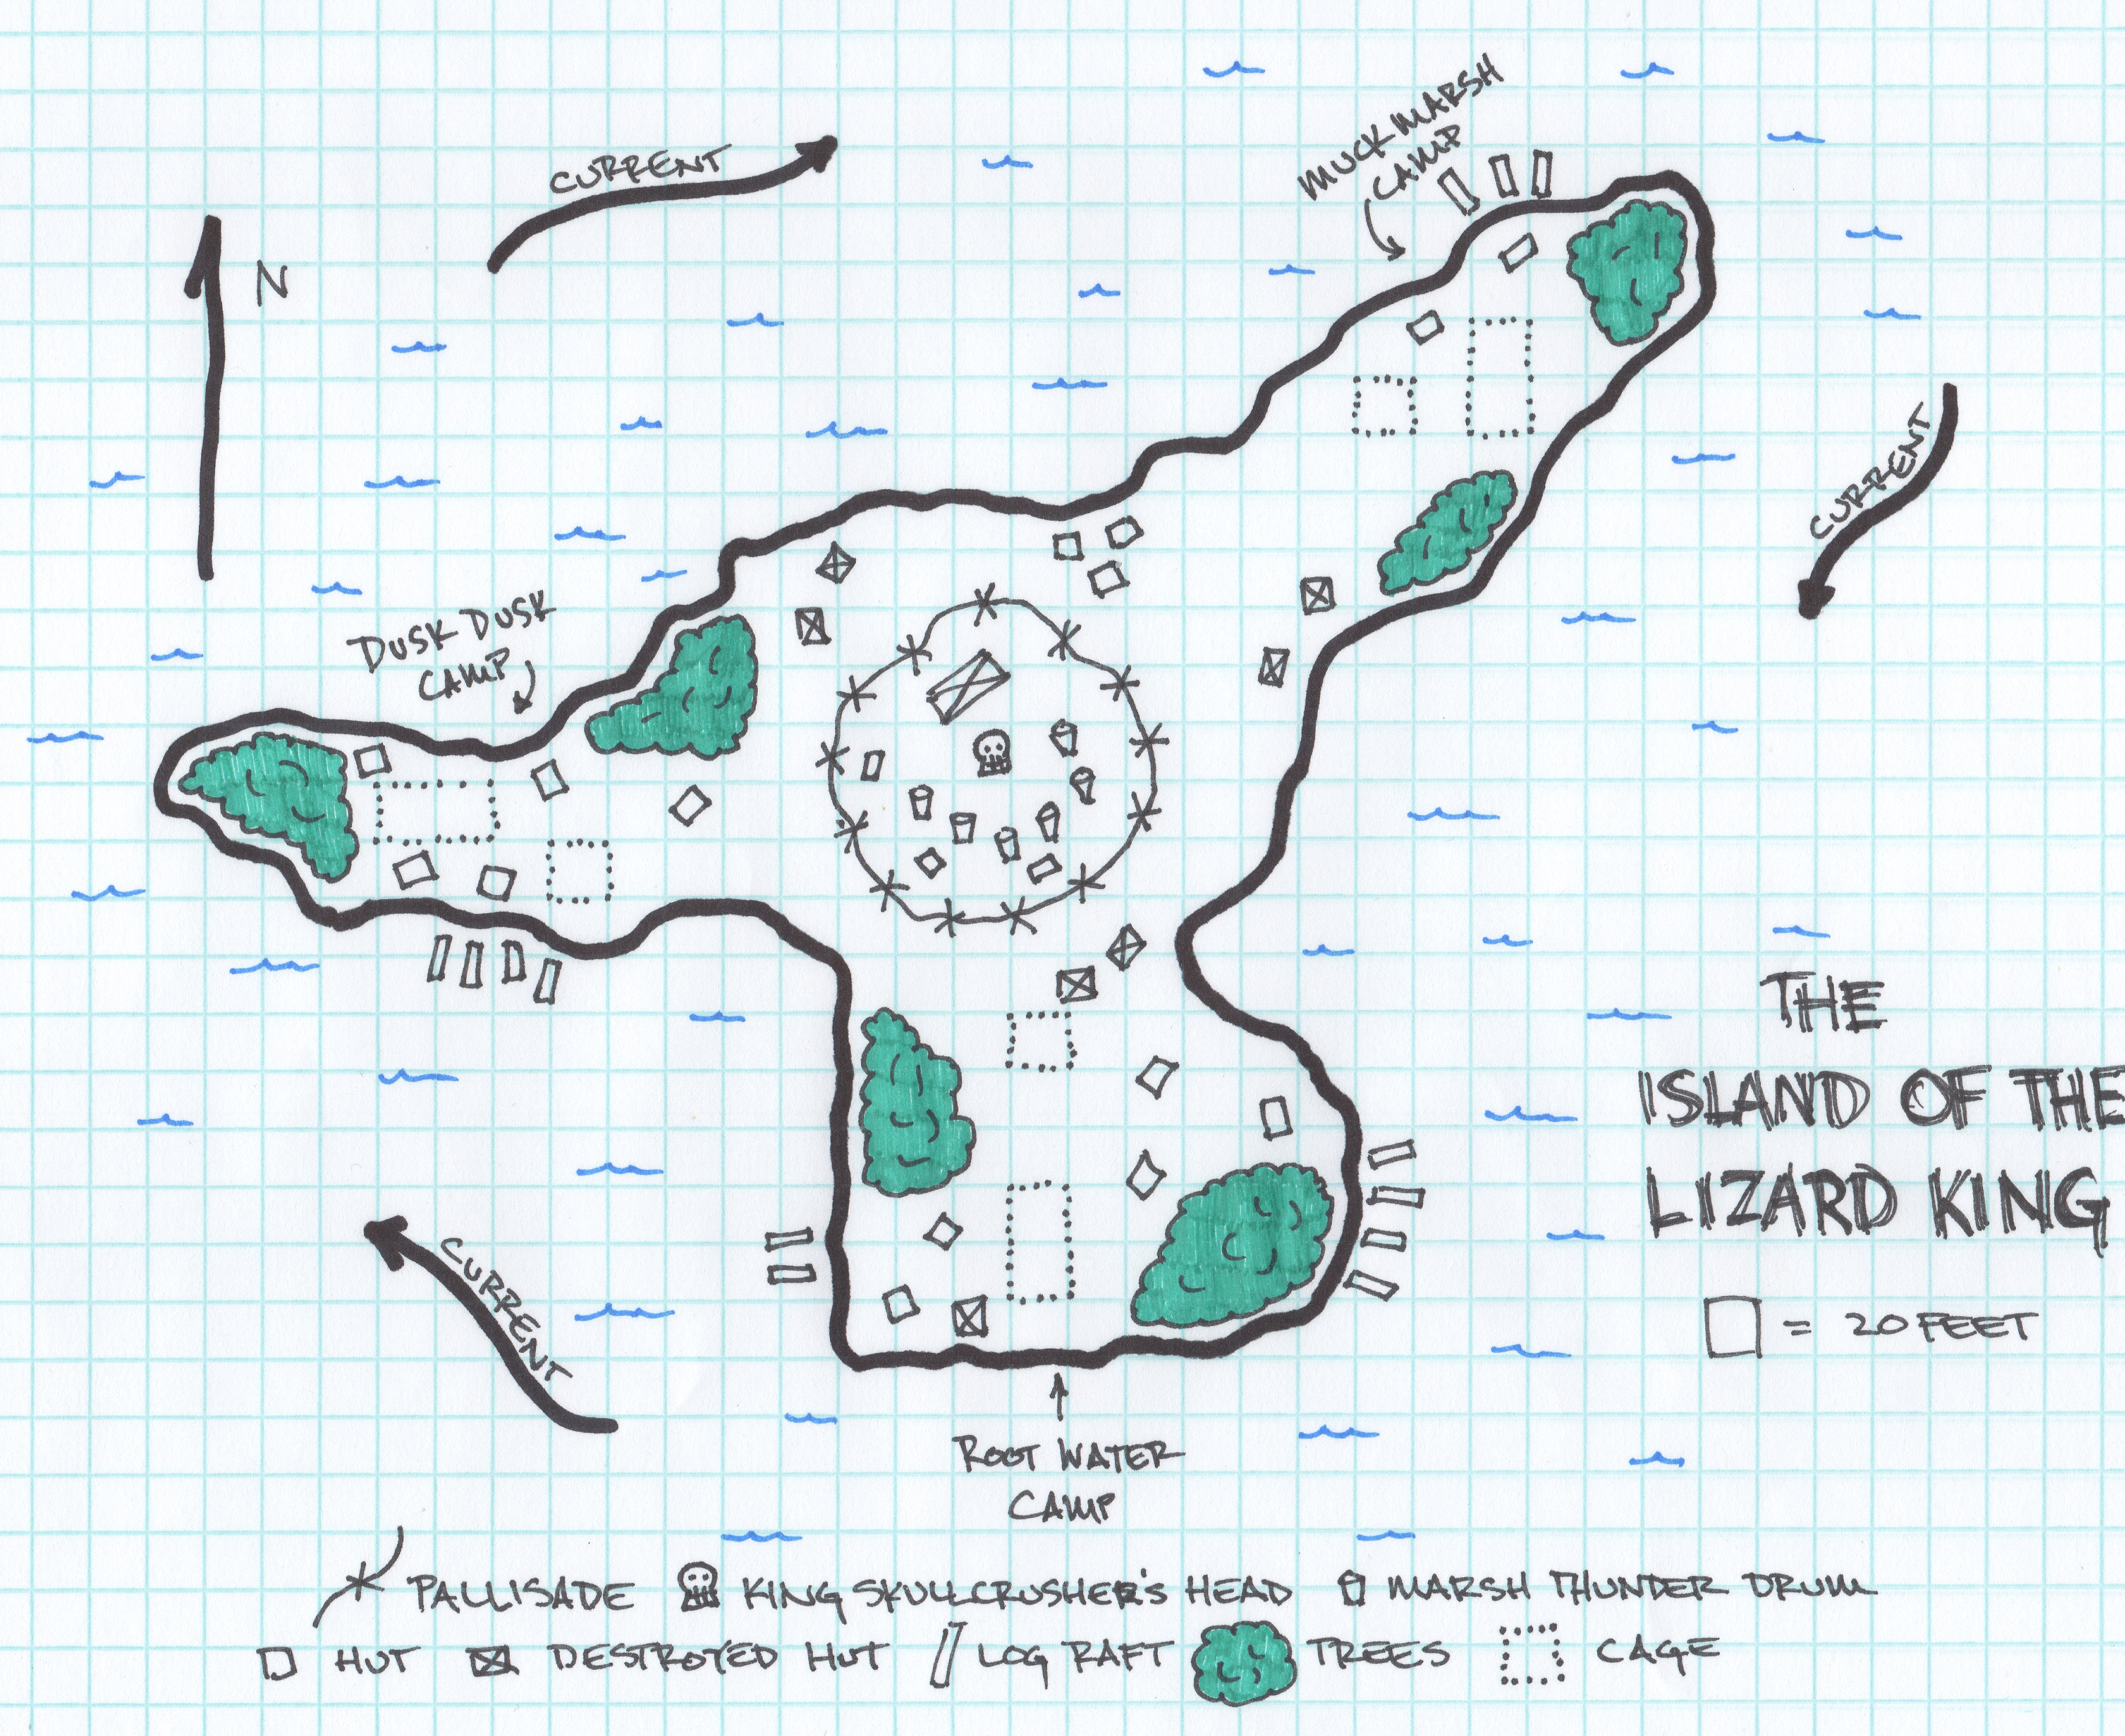 CURRENT
MUCK MARSH
CAMP
N
CURRENT
DUSK DUSK
CAMP
THE
ISLAND OF THE
LIZARD KING
CURRENT
= 20 FEET
ROOT WATER
CAMP
PALLISADE KING SKULLCRUSHER'S HEAD MARSH THUNDER DRUM
HUT DESTROYED HUT LOG RAFT TREES CAGE